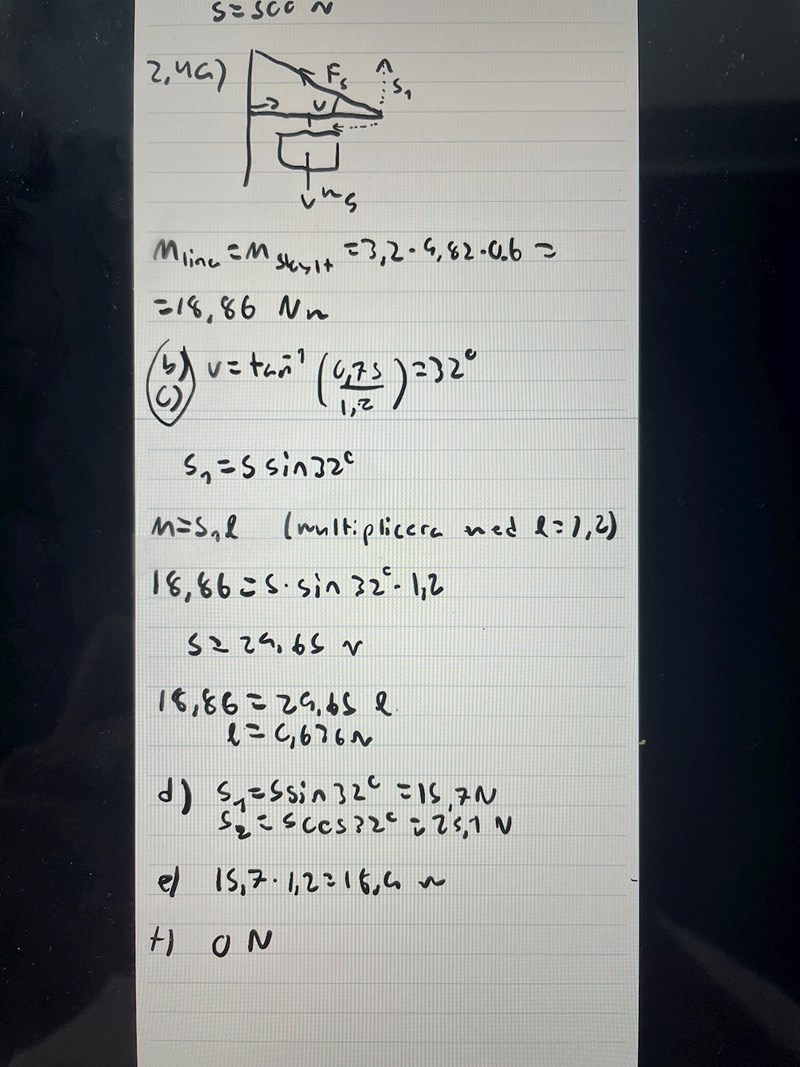 S=500 N
2,4a)
Fs
S₁
v
mg
M_lina = M_skylt = 3,2·9,82·0,6 =
=18,86 Nm
b) v = tan⁻¹ (0,75/1,2) = 32°
c)
S₁ = S sin 32°
M=S₁l (multiplicera med l=1,2)
18,86 = S · sin 32° · 1,2
S = 29,65 N
18,86 = 29,65 l
l = 0,636 m
d) S₁ = S sin 32° = 15,7 N
S₂ = S cos 32° = 25,1 N
e) 15,7 · 1,2 = 18,9 m
f) 0 N